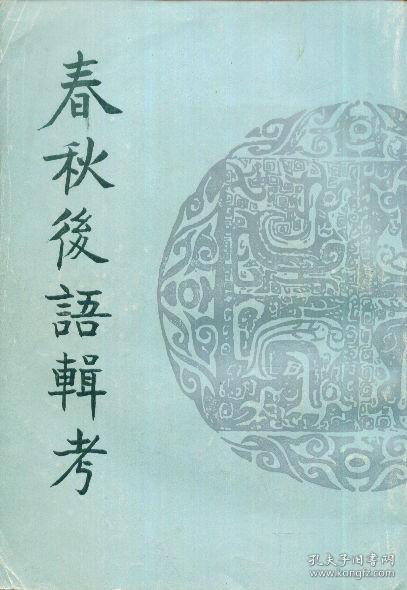 春秋後語輯考
孔夫子旧书网
www.kongfz.com